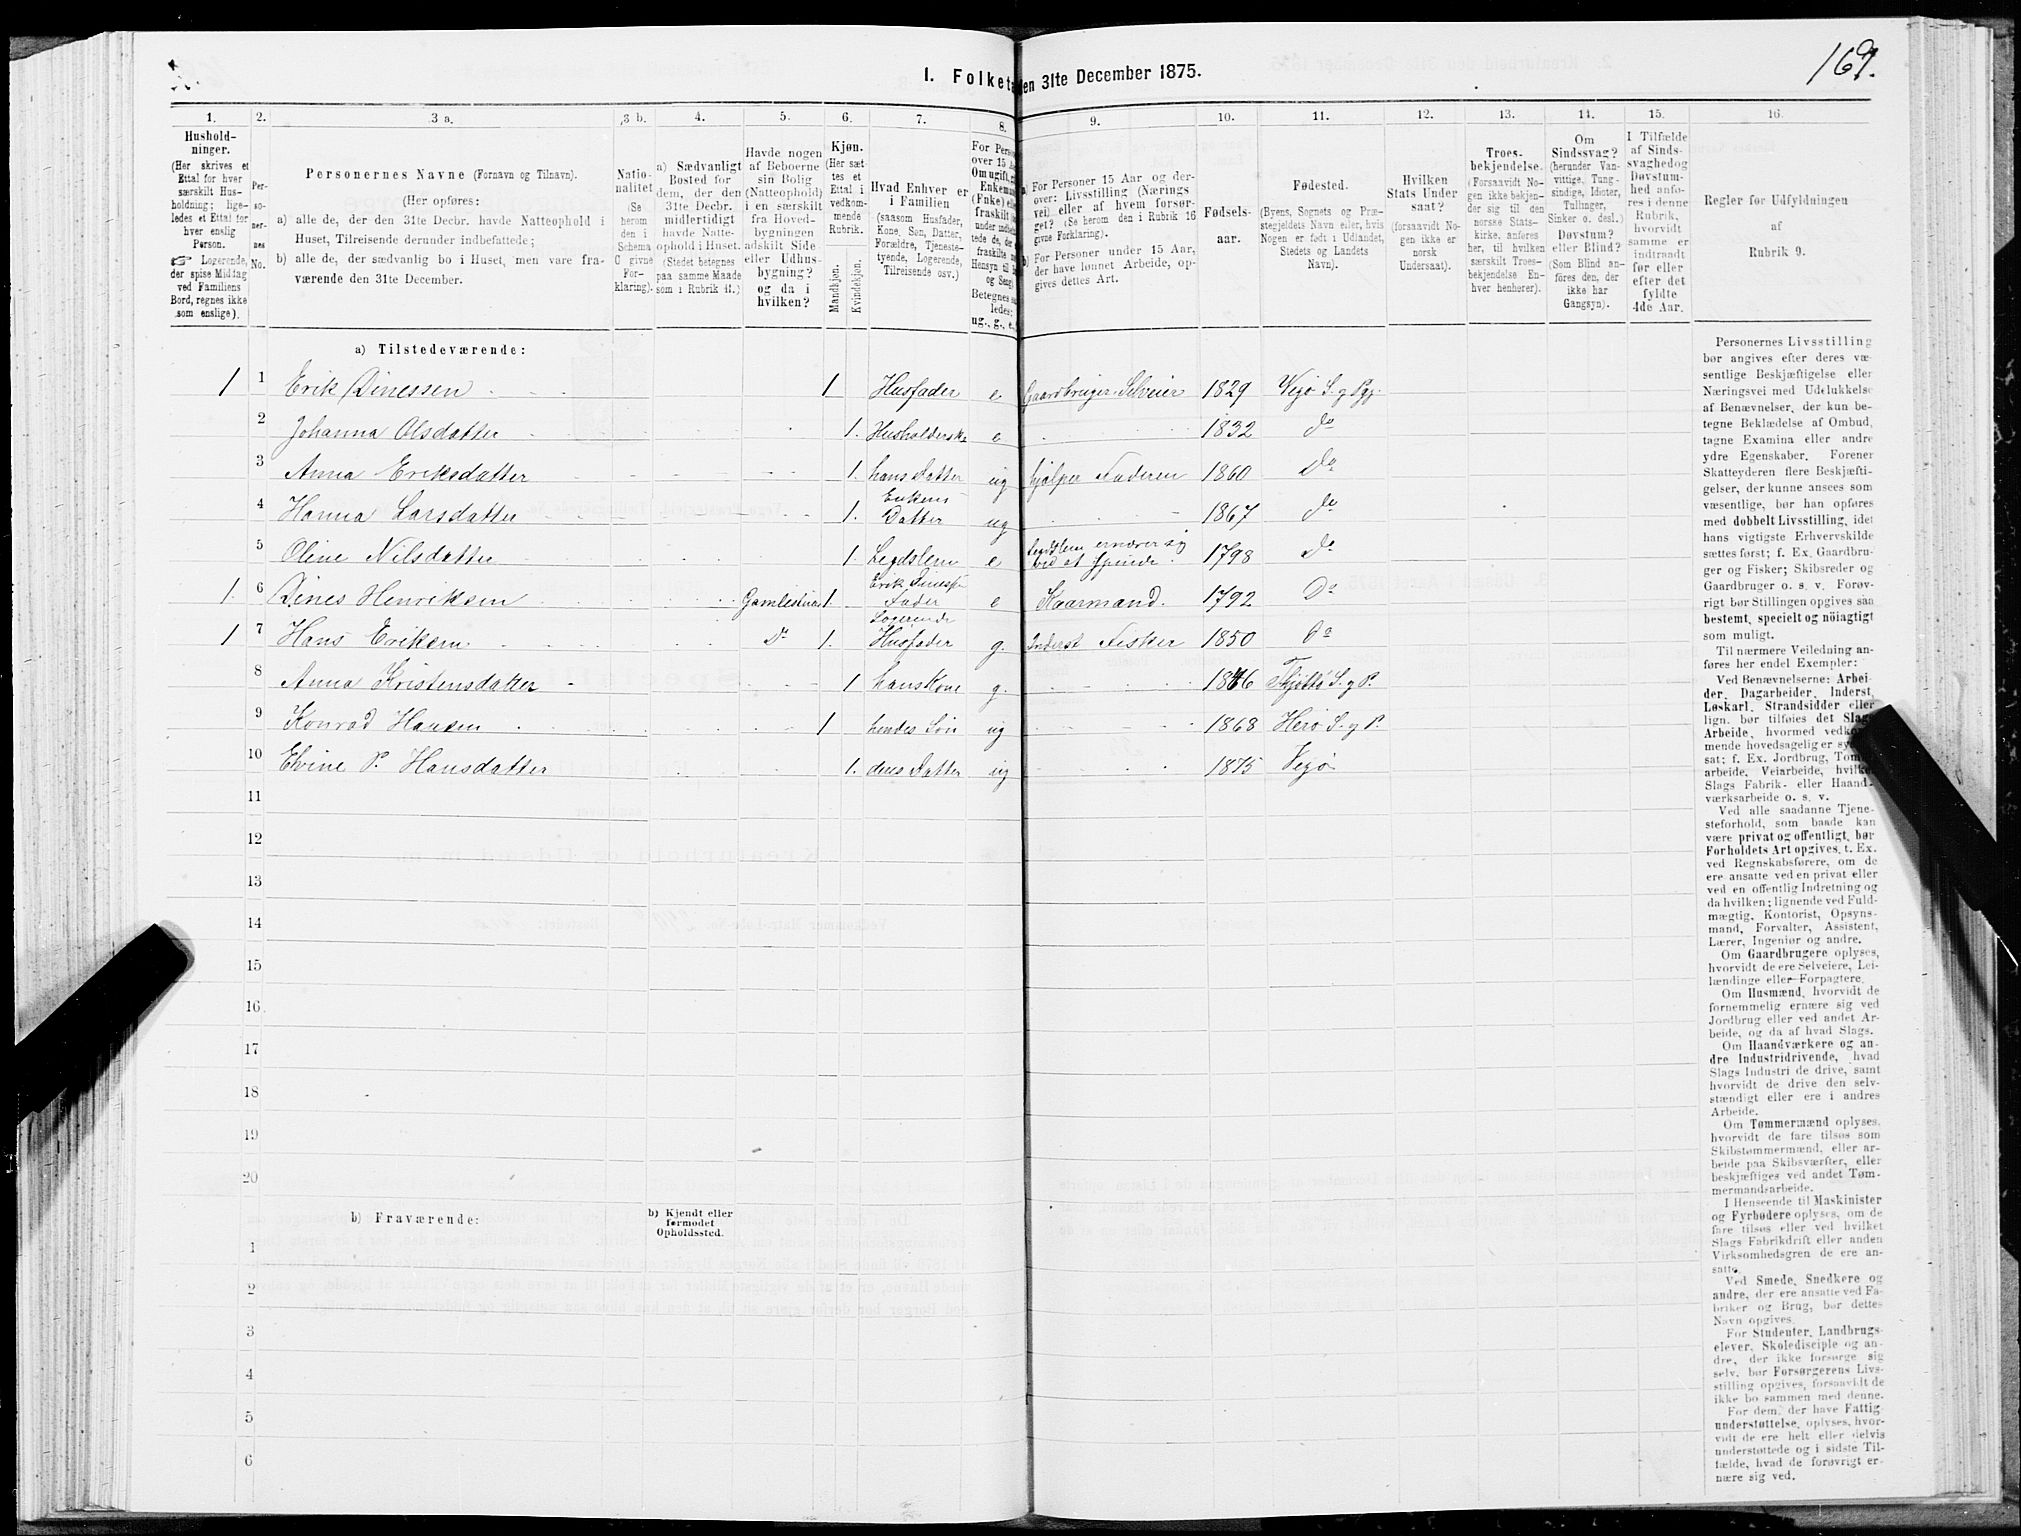 1. Folketa
den 31te December 1875.
169.
1. 2. 3 a. 3 b. 4. 5. 6. 7. 8. 9. 10. 11. 12. 13. 14. 15. 16.
Hushold-
ninger.
(Her skrives et
Ettal for hver
særskilt Hus-
holdning; lige-
ledes et Ettal for
hver enslig
Person.
☞ Logerende,
der spise Middag
ved Familiens
Bord, regnes ikke
som enslige).
Per-
so-
ner-
nes
No.
Personernes Navne (Fornavn og Tilnavn).
(Her opføres:
a) alle de, der den 31te Decbr. havde Natteophold i
Huset, Tilreisende derunder indbefattede;
b) alle de, der sædvanlig bo i Huset, men vare fra-
værende den 31te December.
Natio-
nalitet
(Se
herom
den i
Schema
C givne
For-
klaring).
a) Sædvanligt
Bosted for
dem, der den
31te Decbr.
midlertidigt
havde Natte-
ophold i Huset.
(Stedet betegnes
paa samme Maade
som i Rubrik 11.)
Havde nogen
af Beboerne
sin Bolig
(Natteophold)
i en særskilt
fra Hoved-
bygningen
adskilt Side-
eller Udhus-
bygning?
og da i
hvilken?
Kjøn.
(Her sæt-
tes et
Ettal i
vedkom-
mende
Rubrik.
Mandkjøn.
Kvindekjøn.
Hvad Enhver er
i Familien
(saasom Husfader,
Kone, Søn, Datter,
Forældre, Tjeneste-
tyende, Logerende,
Tilreisende osv.)
For Perso
over 15 A
Om ugift, g
Enkema
(Enke) e
fraskilt
Betegnes s
ledes:
ug., g., e.,
a) For Personer 15 Aar og der-
over: Livsstilling (Nærings-
vei) eller af hvem forsør-
get? (Se herom den i Rubrik 16
givne Forklaring).
b) For Personer under 15 Aar,
der have lønnet Arbeide, op-
gives dettes Art.
Fødsels-
aar.
Fødested.
(Byens, Sognets og Præ-
stegjeldets Navn eller, hvis
Nogen er født i Udlandet,
Stedets og Landets
Navn).
Hvilken
Stats Under-
saat?
(forsaavidt No-
gen ikke er
norsk
Undersaat).
Troes-
bekjendelse.
(Forsaavidt No-
gen ikke bekjen-
der sig til den
norske Stats-
kirke, anføres
her, til hvilken
særskilt Troes-
bekjendelse En-
hver henhører).
Om
Sindssvag?
(herunder Van-
vittige, Tung-
sindige, Idioter,
Tullinger,
Sinker o. desl.)
Døvstum?
eller Blind?
(Som Blind an-
føres den, der
ikke har
Gangsyn).
I Tilfælde
af Sinds-
svaghed og
Døvstum-
hed anfø-
res i denne
Rubrik,
hvorvidt
samme er
indtraadt
før eller
efter det
fyldte
4de Aar.
Regler for Udfyldningen
af
Rubrik 9.
a) Tilstedeværende:
1 1 Erik Dinessen 1 Husfader e Gaardbruger Selveier 1829 Vegø S. og Pgj.
2 Johanna Olsdatter 1. Husholderske e 1832 do
3 Anna Eriksdatter 1. hans Datter ug hjælper Faderen 1860 Do
4 Hanna Larsdatter 1. Enkens Datter ug 1867 do
5 Oline Nilsdatter 1. Legdslem e Legdslem ernærer sig ved at spinde. 1798 Do
1. 6 Dines Henriksen 1. Fader e Kaarmand. 1792 Do
1 7 Hans Eriksen Do 1. Logerende Husfader g. Inderst Fisker 1850 Do
8 Anna Kristensdatter 1 hans Kone g. 1846 Tjøttø S. og P.
9 Konrad Hansen 1 hendes Søn ug 1868 Herø S. og P.
10 Elvine P. Hansdatter 1. deres Datter ug 1875 Vegø
11
12
13
14
15
16
17
18
19
20
b) Fraværende:
b) Kjendt eller
formodet
Opholdssted.
1
2
3
4
5
6
Personernes Livsstilling
bør angives efter deres væ-
sentlige Beskjæftigelse eller
Næringsvei med Udelukkelse
af Benævnelser, der kun be-
tegne Beklædelse af Ombud,
tagne Examina eller andre
ydre Egenskaber. Forener
Skatteyderen flere Beskjæfti-
gelser, der kunne ansees som
væsentlige, bør han opføres
med dobbelt Livsstilling, idet
hans vigtigste Erhvervskilde
sættes først; f. Ex. Gaardbru-
ger og Fisker; Skibsreder og
Gaardbruger o. s. v. Forøv-
rigt bør Stillingen opgives saa
bestemt, specielt og nöiagtigt
som muligt.
Til nærmere Veiledning an-
føres her endel Exempler:
Ved Benævnelserne: Arbei-
der, Dagarbeider, Inderst,
Løskarl, Strandsidder eller
lign. bør tilføies det Slags
Arbeide, hvormed vedkom-
mende hovedsagelig er sys-
sat; f. Ex. Jordbrug, Tom
arbeide, Veiarbeide, hvilke
Slags Fabrik- eller Haand-
værksarbeide o. s. v.
Ved alle saadanne Tjene-
steforhold, som baade kan
være privat og offentligt, bør
Forholdets Art opgives, t. Ex.
ved Regnskabsførere, om de
ere ansatte ved en privat eller
ved en offentlig Indretning og
da hvilken; lignende ved Fuld-
mægtig, Kontorist, Opsyns-
mand, Forvalter, Assistent,
Lærer, Ingeniør og andre.
Om Gaardbrugere oplyses,
hvorvidt de ere Selveiere, Lei-
lændinge eller Forpagtere.
Om Husmænd, hvorvidt de
fornemmelig ernære sig ved
Jordbrug eller ved andet Ar-
beide, og da af hvad Slags.
Om Haandværkere og an-
dre Industridrivende, hvad
Slags Industri de drive, samt
hvorvidt de drive den selv-
stændigt eller ere i andres
Arbeide.
Om Tømmermænd oplyses,
hvorvidt de fare tilsøs som
Skibstømmermænd, eller ar-
beide paa Skibsværfter, eller
beskjæftiges ved andet Tøm-
mermandsarbeide.
I Henseende til Maskinister
og Fyrbødere oplyses, om de
fare tilsøs eller ved hvilket
Slags Fabrikdrift eller anden
Virksomhedsgren de ere an-
satte.
Ved Smede, Snedkere og
andre, der ere ansatte ved Fa-
briker og Brug, bør dettes
Navn opgives.
For Studenter, Landbrugs-
elever, Skoledisciple og an-
dre, der ikke forsørge sig
selv, bør Forsørgerens Livs-
stilling opgives, forsaavidt de
ikke bo sammen med denne.
For dem, der have Fattig-
understøttelse, oplyses, hvor-
vidt de ere helt eller delvis
understøttede og i sidste Til-
fælde, hvad de forøvrigt er-
nære sig ved.